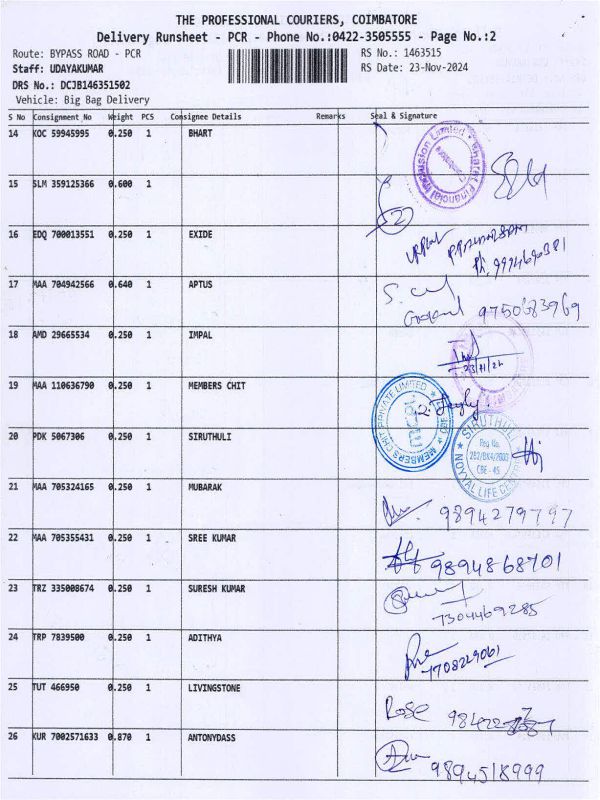 THE PROFESSIONAL COURIERS, COIMBATORE
Delivery Runsheet - PCR - Phone No.:0422-3505555 - Page No.:2
Route: BYPASS ROAD - PCR
RS No.: 1463515
Staff: UDAYAKUMAR
RS Date: 23-Nov-2024
DRS No.: DCJB146351502
Vehicle: Big Bag Delivery
S No Consignment No Weight PCS Consignee Details Remarks Seal & Signature
14 KOC 59945995 0.250 1 BHART
Bharat Financial Inclusion Limited
15 SLM 359125366 0.600 1
52
16 EDQ 700013551 0.250 1 EXIDE
Ph. 9994690381
17 MAA 704942566 0.640 1 APTUS
9750683969
18 AMD 29665534 0.250 1 IMPAL
23/11/24
19 MAA 110636790 0.250 1 MEMBERS CHIT
MEMBERS CHIT PRIVATE LIMITED
20 PDK 5067306 0.250 1 SIRUTHULI
SIRUTHULI
Reg No.
CBE - 45
NOYYAL LIFE
21 MAA 705324165 0.250 1 MUBARAK
9894279797
22 MAA 705355431 0.250 1 SREE KUMAR
9894868701
23 TRZ 335008674 0.250 1 SURESH KUMAR
7304469285
24 TRP 7839500 0.250 1 ADITHYA
7708229061
25 TUT 466950 0.250 1 LIVINGSTONE
Rose
26 KUR 7002571633 0.870 1 ANTONYDASS
9894518999